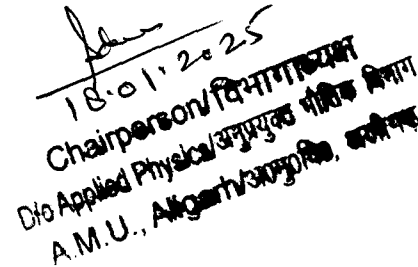 18.01.2025
Chairperson/विभागाध्यक्ष
D/o Applied Physics/अनुप्रयुक्त भौतिक विभाग
A.M.U., Aligarh/अ०मु०वि०, अलीगढ़